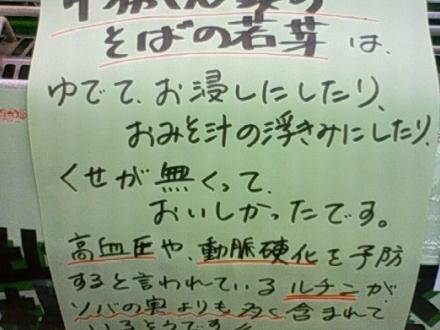 そばの若芽は、
ゆでて、お浸しにしたり、
おみそ汁の浮きみにしたり、
くせが無くって、
おいしかったです。
高血圧や、動脈硬化を予防
すると言われているルチンが、
ソバの実よりも多く含まれて
いるそうです!!